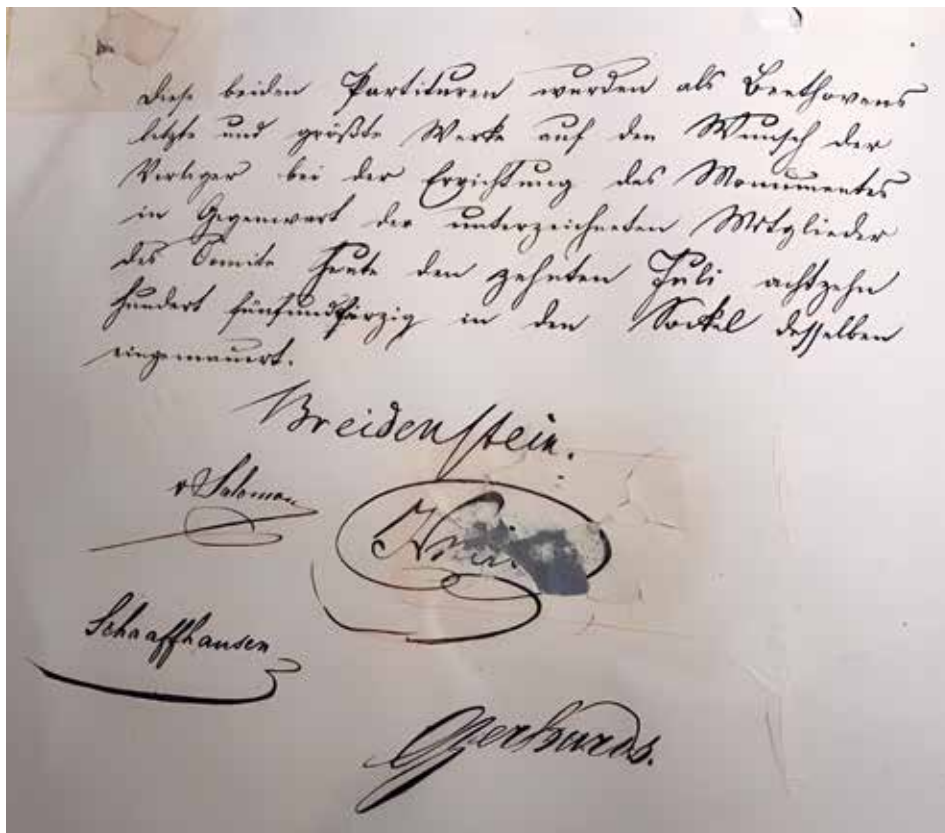 Diese beiden Partituren wurden als Beethovens
letzte und größte Werke auf den Wunsch der
Verleger bei der Errichtung des Monumentes
in Gegenwart der unterzeichneten Mitglieder
des Comite heute den zehnten Juli achtzehn
hundert fünfundfürzig in den Sockel desselben
eingemauert.
Breidenstein.
v Salomon
Schaaffhausen
Gerhards.